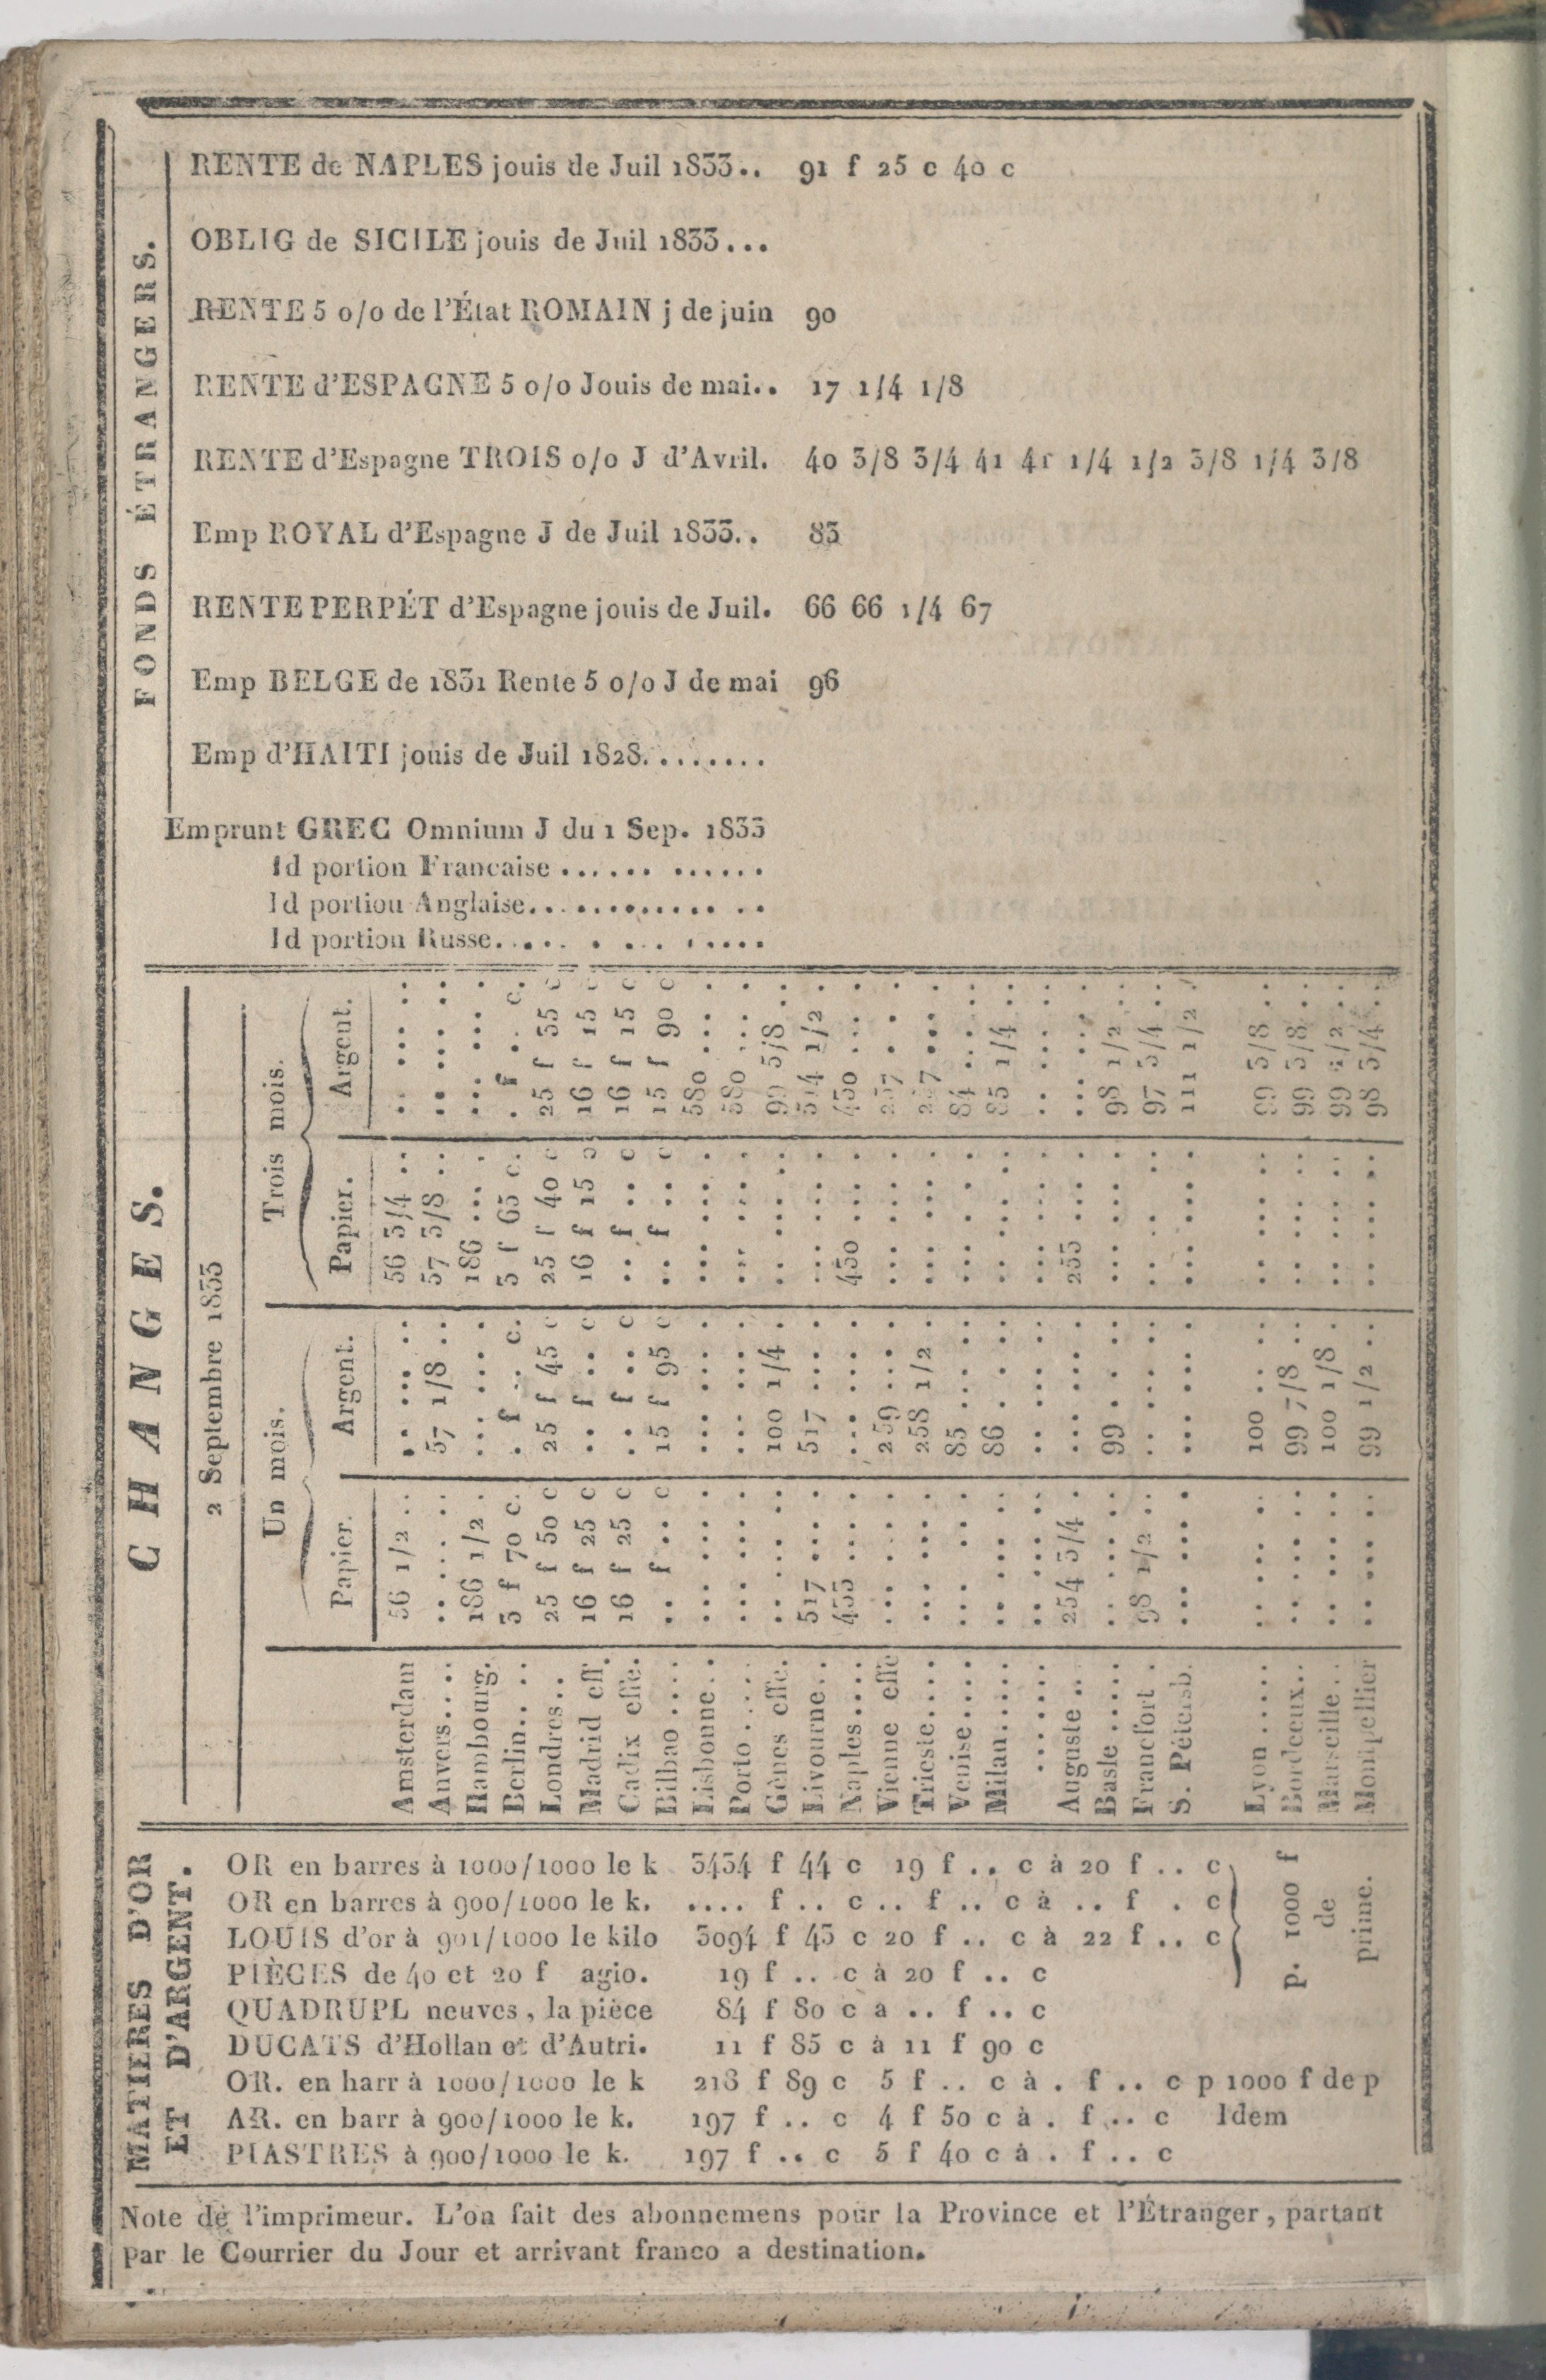 FONDS ÉTRANGERS.
RENTE de NAPLES jouis de Juil 1833.. 91 f 25 c 40 c
OBLIG de SICILE jouis de Juil 1833...
RENTE 5 o/o de l'État ROMAIN j de juin 90
RENTE d'ESPAGNE 5 o/o Jouis de mai.. 17 1/4 1/8
RENTE d'Espagne TROIS o/o J d'Avril. 40 3/8 3/4 41 41 1/4 1/2 3/8 1/4 3/8
Emp ROYAL d'Espagne J de Juil 1833.. 83
RENTE PERPÉT d'Espagne jouis de Juil. 66 66 1/4 67
Emp BELGE de 1831 Rente 5 o/o J de mai 96
Emp d'HAITI jouis de Juil 1828........
Emprunt GREC Omnium J du 1 Sep. 1833
Id portion Francaise ...... ......
Id portiou Anglaise............. ..
Id portion Russe..... . ... .....
CHANGES.
2 Septembre 1833
Un mois. Trois mois.
Papier. Argent. Papier. Argent.
Amsterdam 56 1/2 .. .. ... .. 56 3/4 .. .. ... ..
Anvers.... .. ... .. 57 1/8 .. 57 3/8 .. .. ... ..
Hambourg. 186 1/2 . ... ... . 186 ... . ... ... .
Berlin.. .. 3 f 70 c. . f .. c. 3 f 65 c. . f .. c.
Londres... 25 f 50 c 25 f 45 c 25 f 40 c 25 f 35 c
Madrid eff. 16 f 25 c .. f .. c 16 f 15 c 16 f 15 c
Cadix effe. 16 f 25 c .. f .. c .. f .. c 16 f 15 c
Bilbao .... .. f .. c 15 f 95 c .. f .. c 15 f 90 c
Lisbonne.. ... ... . ... ... . ... ... . 580 ... .
Porto..... ... ... . ... ... . ... ... . 580 ... .
Gènes effe. .. ... .. 100 1/4 . .. ... .. 99 5/8 ..
Livourne... 517 ... . 517 ... . ... ... . 514 1/2 .
Naples.... 433 ... . ... ... . 430 ... . 430 ... .
Vienne effe ... ... . 259 ... . ... ... . 257 . .
Trieste.... ... ... . 258 1/2 . ... ... . 257 ... .
Venise..... ... .. . 85 .. .. ... .. . 84 .. ..
Milan...... .. ... .. 86 . .. .. ... .. 85 1/4 ..
...... .. ... .. .. ... .. .. ... .. .. ... ..
Auguste .. 254 3/4 . ... ... . 253 ... . ... ... .
Basle ..... .. ... .. 99 . .. ... .. . 98 1/2 ..
Francfort . 98 1/2 .. .. ... .. .. . .. 97 3/4 ..
S. Pétersb. ... ... . ... ... . ... ... . 111 1/2 .
Lyon ..... .. ... .. 100 .. .. .. ... .. 99 3/8 ..
Bordeeux... .. ... .. 99 7/8 .. .. ... .. 99 3/8 ..
Marseille.. .. ... .. 100 1/8 . .. ... .. 99 1/2 ..
Montpellier .. ... .. 99 1/2 .. .. ... .. 98 3/4 ..
MATIERES D'OR
ET D'ARGENT.
OR en barres à 1000/1000 le k 3434 f 44 c 19 f .. c à 20 f .. c
OR en barres à 900/1000 le k. .... f .. c .. f .. c à .. f . c
LOUIS d'or à 901/1000 le kilo 3094 f 43 c 20 f .. c à 22 f .. c
PIÈCES de 40 et 20 f agio. 19 f .. c à 20 f .. c
p. 1000 f
de
prime.
QUADRUPL neuves, la pièce 84 f 80 c a .. f .. c
DUCATS d'Hollan et d'Autri. 11 f 85 c à 11 f 90 c
OR. en harr à 1000/1000 le k 218 f 89 c 5 f .. c à . f .. c p 1000 f de p
AR. en barr à 900/1000 le k. 197 f .. c 4 f 50 c à . f .. c Idem
PIASTRES à 900/1000 le k. 197 f .. c 5 f 40 c à . f .. c
Note de l'imprimeur. L'on fait des abonnemens pour la Province et l'Étranger, partant
par le Courrier du Jour et arrivant franco a destination.